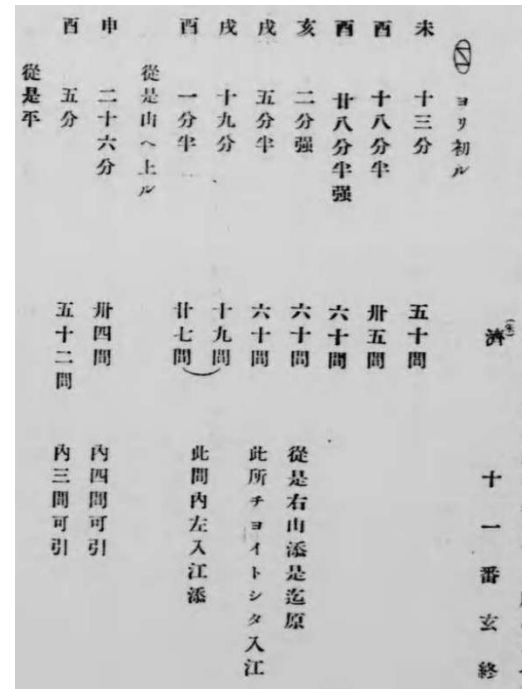 (朱)
濟 十一番玄終
ヨリ初ル
未 十三分 五十間
酉 十八分半 卅五間
酉 廿八分半强 六十間
亥 二分强 六十間 從是右山添是迄原
戌 五分半 六十間 此所チヨイトシタ入江
戌 十九分 十九間
酉 一分半 廿七間 此間內左入江添
從是山へ上ル
申 二十六分 卅四間 內四間可引
酉 五分 五十二間 內三間可引
從是平